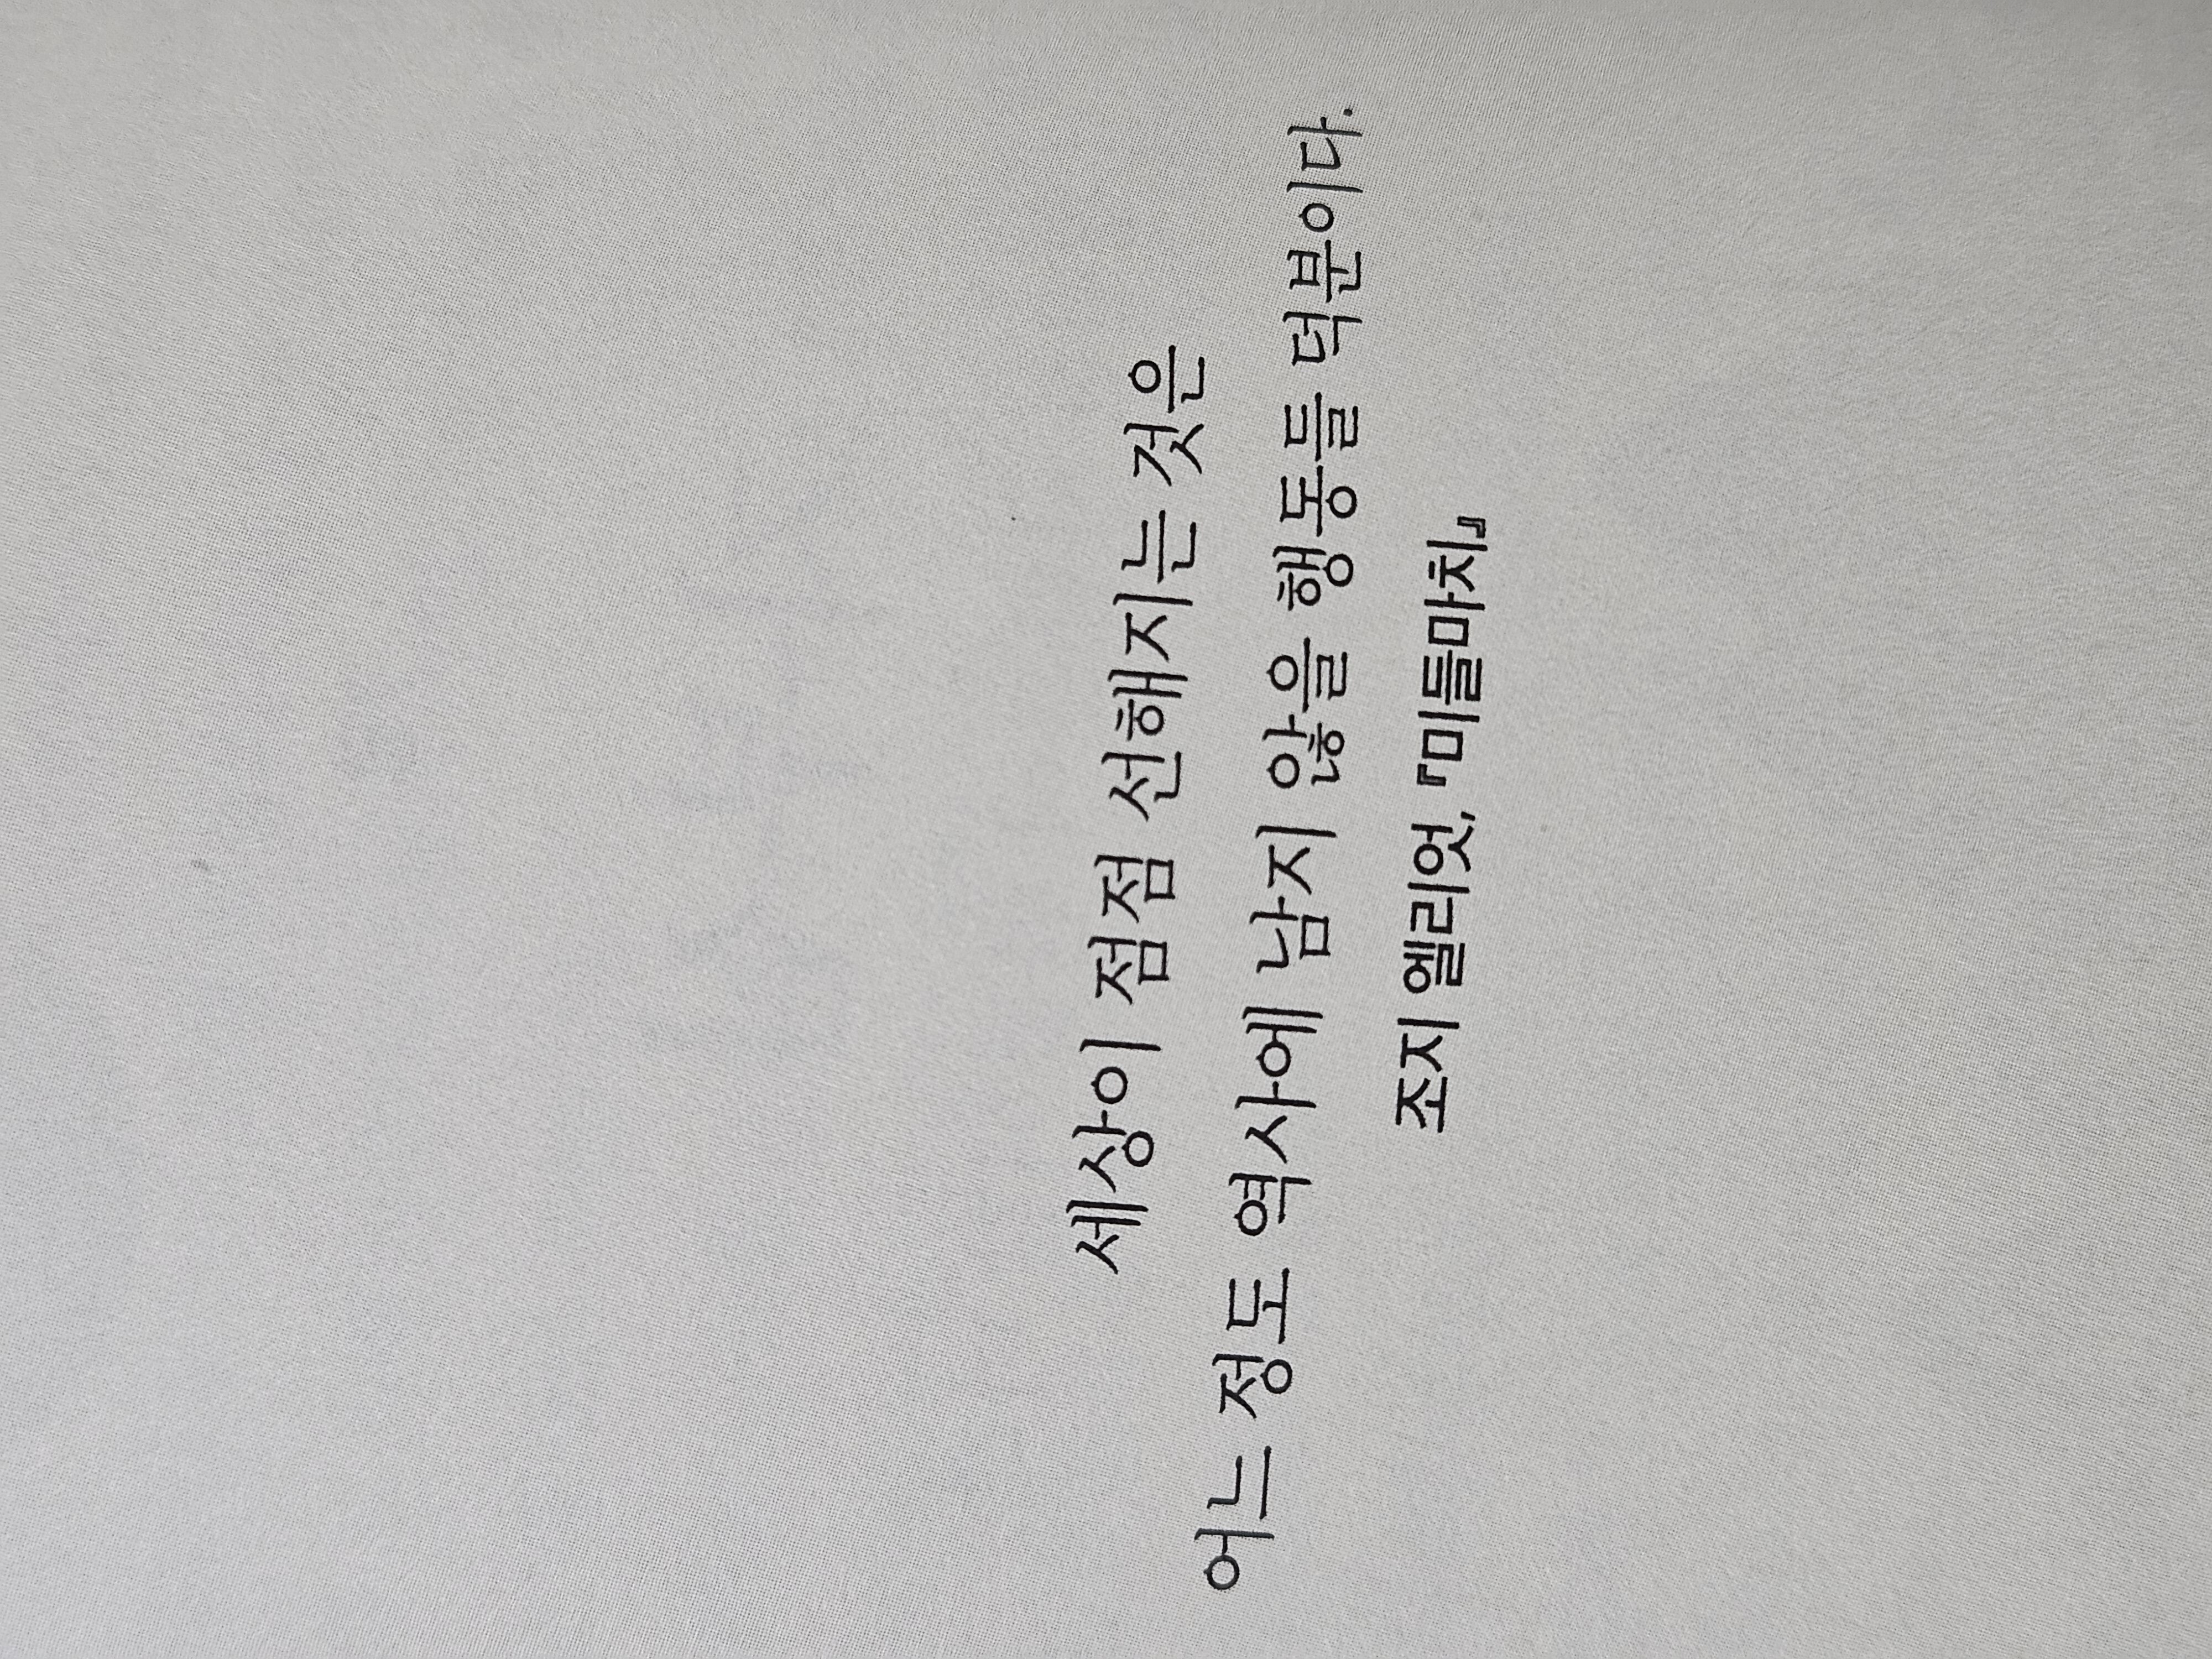 세상이 점점 선해지는 것은
어느 정도 역사에 남지 않을 행동들 덕분이다.
조지 엘리엇, 『미들마치』